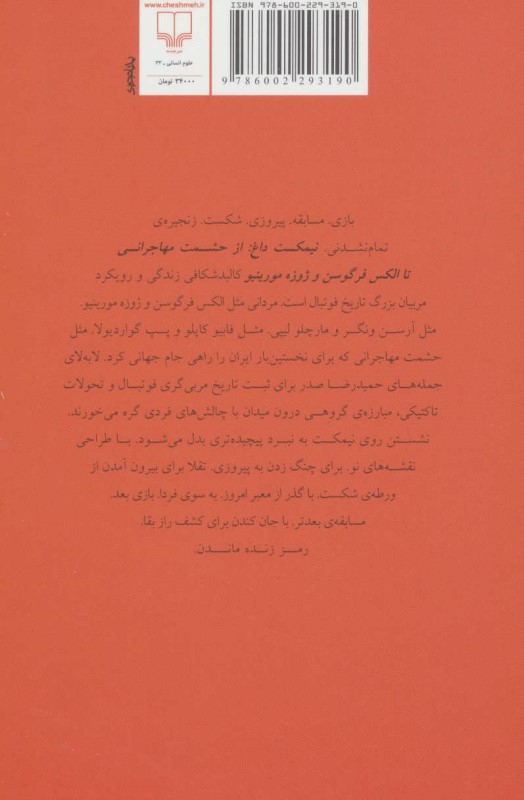 www.cheshmeh.ir
ISBN 978-600-229-319-0
علوم انسانی ـ ۲۳
۳۴۰۰۰ تومان
9 786002 293190
بازی. مسابقه. پیروزی. شکست. زنجیره‌ی
تمام‌نشدنی. نیمکت داغ: از حشمت مهاجرانی
تا الکس فرگوسن و ژوزه مورینیو کالبدشکافی زندگی و رویکرد
مربیان بزرگ تاریخ فوتبال است. مردانی مثل الکس فرگوسن و ژوزه مورینیو.
مثل آرسن ونگر و مارچلو لیپی. مثل فابیو کاپلو و پپ گواردیولا. مثل
حشمت مهاجرانی که برای نخستین‌بار ایران را راهی جام جهانی کرد. لابه‌لای
جمله‌های حمیدرضا صدر برای ثبت تاریخ مربی‌گری فوتبال و تحولات
تاکتیکی، مبارزه‌ی گروهی درون میدان با چالش‌های فردی گره می‌خورند.
نشستن روی نیمکت به نبرد پیچیده‌تری بدل می‌شود. با طراحی
نقشه‌های نو. برای چنگ زدن به پیروزی. تقلا برای بیرون آمدن از
ورطه‌ی شکست. با گذر از معبر امروز. به سوی فردا. بازی بعد.
مسابقه‌ی بعدتر. با جان کندن برای کشف راز بقا.
رمز زنده ماندن.